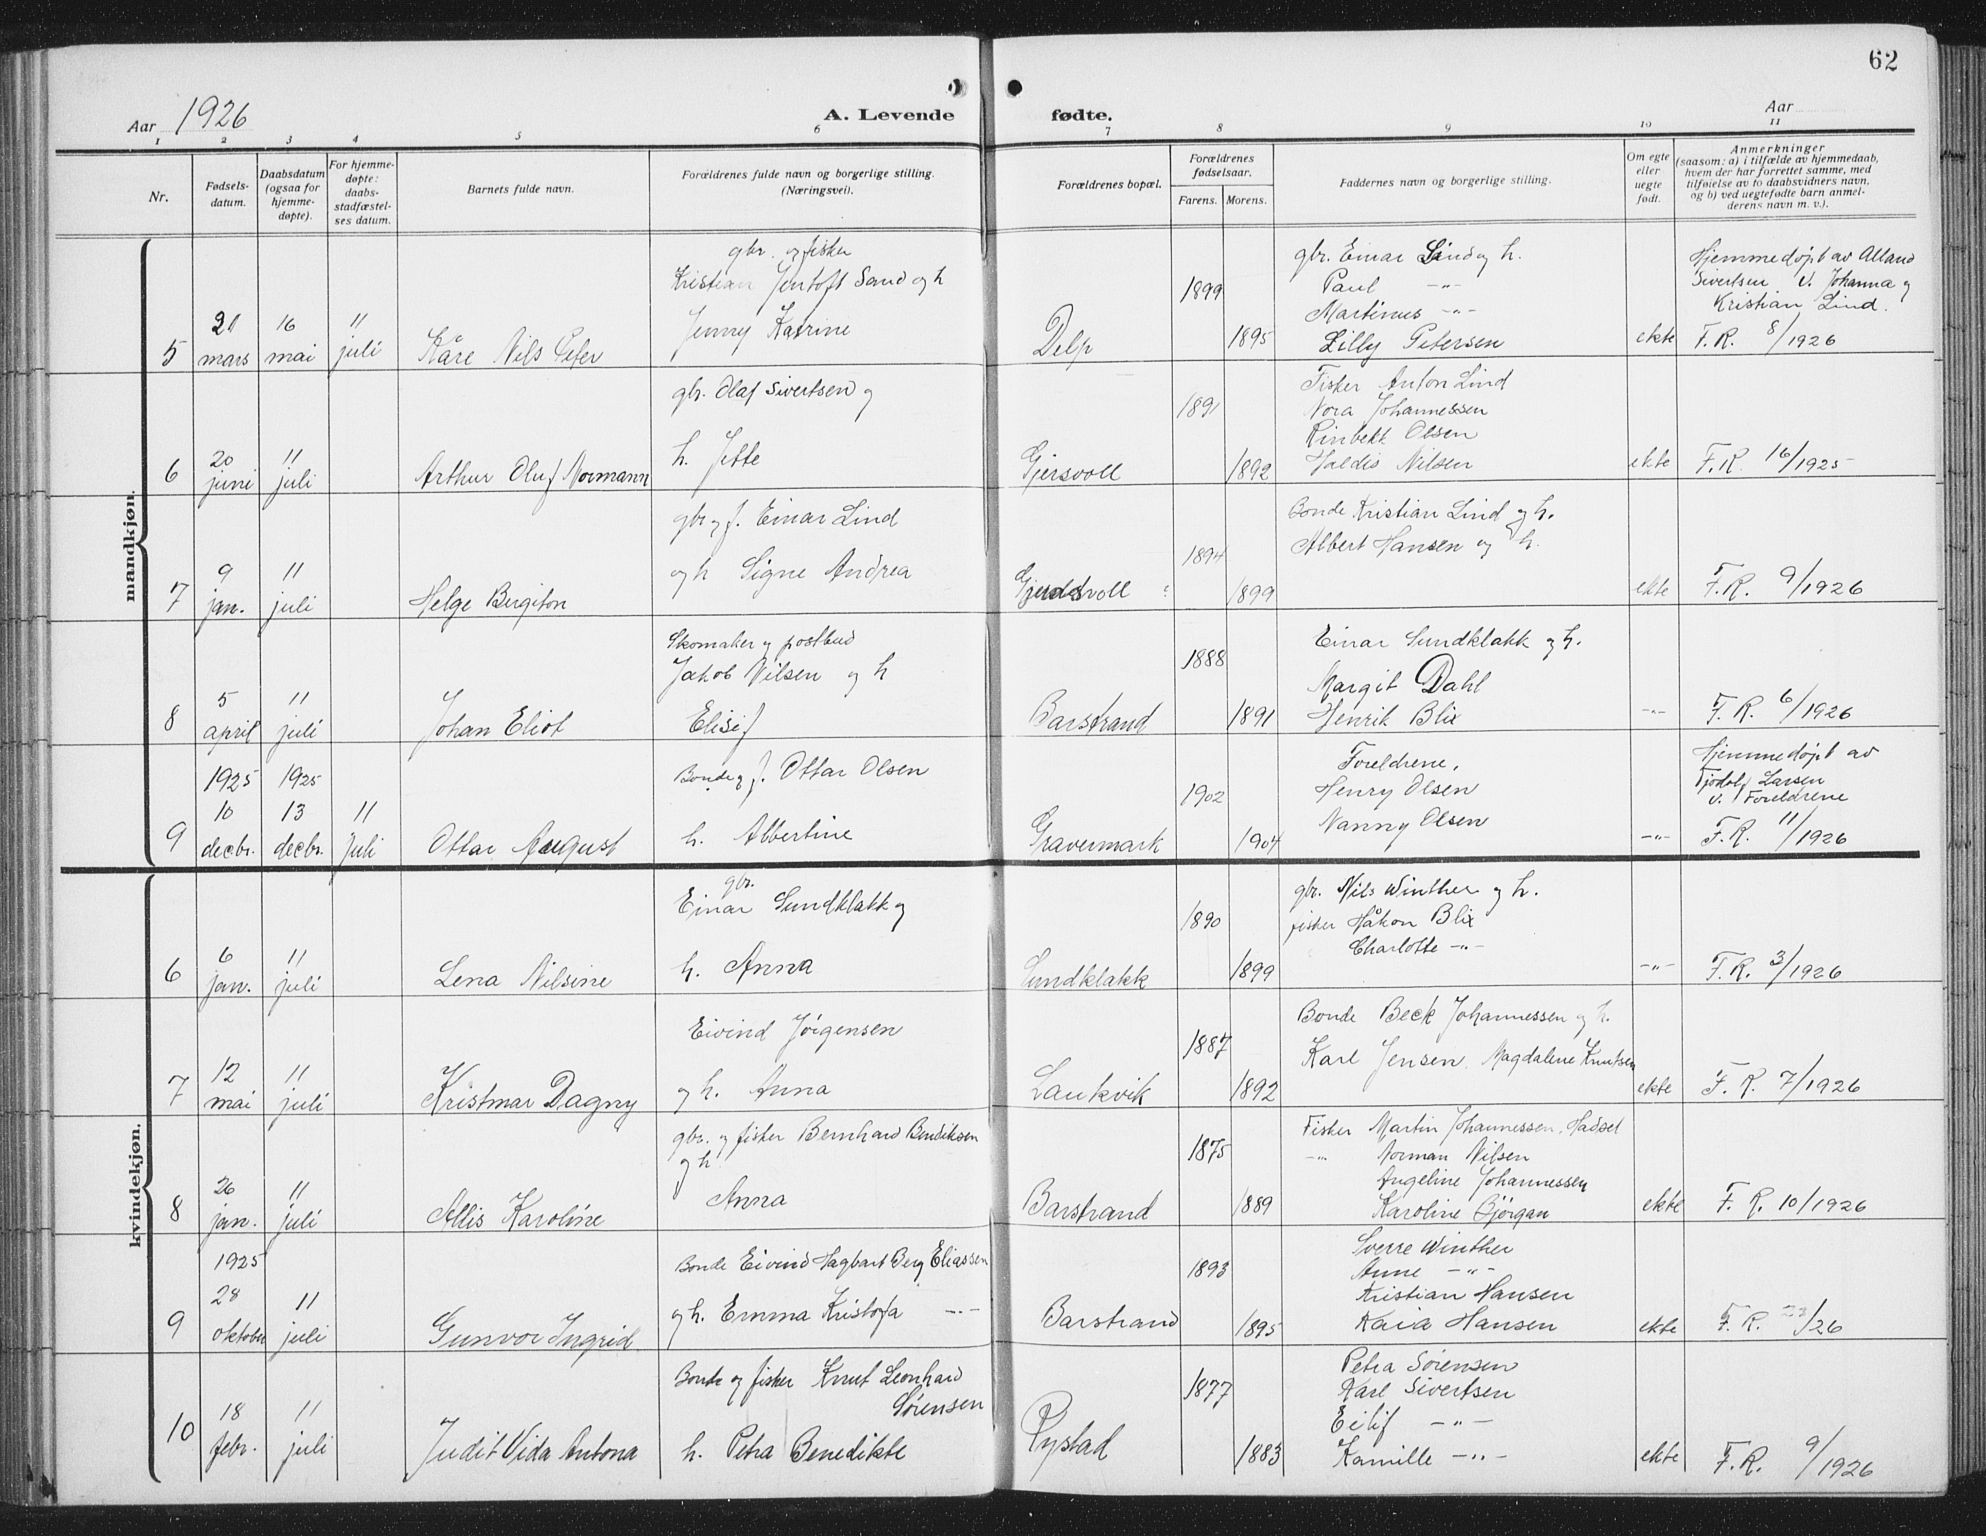 62
Aar 1926
A. Levende fødte.
Aar
1 2 3 4 5 6 7 8 9 10 11
Nr.
Fødsels-
datum.
Daabsdatum
(ogsaa for
hjemme-
døpte).
For hjemme-
døpte:
daabs-
stadfæstel-
ses datum.
Barnets fulde navn.
Forældrenes fulde navn og borgerlige stilling.
(Næringsvei).
Forældrenes bopæl.
Forældrenes
fødselsaar.
Farens. Morens.
Faddernes navn og borgerlige stilling.
Om egte
eller
uegte
født.
Anmerkninger
(saasom: a) i tilfælde av hjemmedaab,
hvem der har forrettet samme, med
tilføielse av to daabsvidners navn,
og b) ved uegtefødte barn anmel-
derens navn m. v.).
mandkjøn.
5
21
mars
16
mai
11
juli
Kåre Nils Peter
gbr. og fisker
Kristian Jentoft Sand og h
Jenny Katrine
Delp
1899
1895
gbr. Einar Lind og h.
Paul -"-
Martinus -"-
Lilly Petersen
ekte
Hjemmedøpt av Alland
Sivertsen v. Johanna og
Kristian Lind.
F. R. 8/1926
6
20
juni
11
juli
Arthur Oluf Normann
gbr. Olaf Sivertsen og
h. Jette
Gjersvoll
1891
1892
Fisker Anton Lind
Nora Johannessen
Rinbekk Olsen
Haldis Nilsen
ekte
F. R. 16/1925
7
9
jan.
11
juli
Helge Bergiton
gbr og f. Einar Lind
og h Signe Andrea
Gjersvoll
1894
1899
Bonde Kristian Lind og h.
Albert Hansen og h.
ekte
F. R. 9/1926
8
5
april
11
juli
Johan Eliot
Skomaker og postbud
Jakob Nilsen og h
Elisif
Barstrand
1888
1891
Einar Sundklakk og h.
Margit Dahl
Henrik Blix
-"-
F. R. 6/1926
9
1925
10
decbr.
1925
13
decbr.
11
juli
Ottar August
Bonde og f. Ottar Olsen
h. Albertine
Gravermark
1902
1904
Foreldrene,
Henry Olsen
Nanny Olsen
-"-
Hjemmedøpt av
Tjodolf Larsen
v. Foreldrene
F. R. 11/1926
kvindekjøn.
6
6
jan.
11
juli
Lena Nilsine
gbr.
Einar Sundklakk og
h. Anna
Sundklakk
1890
1899
gbr. Nils Winther og h.
fisker Håkon Blix
Charlotte -"-
-"-
F. R. 3/1926
7
12
mai
11
juli
Kristmar Dagny
Eivind Jörgensen
og h. Anna
Laukvik
1887
1892
Bonde Beck Johannessen og h.
Karl Jensen. Magdalene Knutsen
ekte
F. R. 7/1926
8
26
jan.
11
juli
Allis Karoline
gbr. og fisker Bernhard Bendiksen
og h
Anna
Barstrand
1875
1889
Fisker Martin Johannessen, Hadsel
-"- Norman Nilsen
Angeline Johannessen
Karoline Bjørgan
ekte
F. R. 10/1926
9
1925
28
oktober
11
juli
Gunvor Ingrid
Bonde Eivind Hagbart Berg Eliassen
og h. Emma Kristofa -"-
Barstrand
1893
1895
Sverre Winther
Anne -"-
Kristian Hansen
Kaia Hansen
ekte
F. R. 23/26
10
18
febr.
11
juli
Judit Vida Antona
Bonde og fisker Knut Leonhard
Sörensen
h. Petra Benedikte
Rystad
1877
1883
Petra Sörensen
Karl Sivertsen
Eilif -"-
Kamille -"-
ekte
F. R. 9/1926